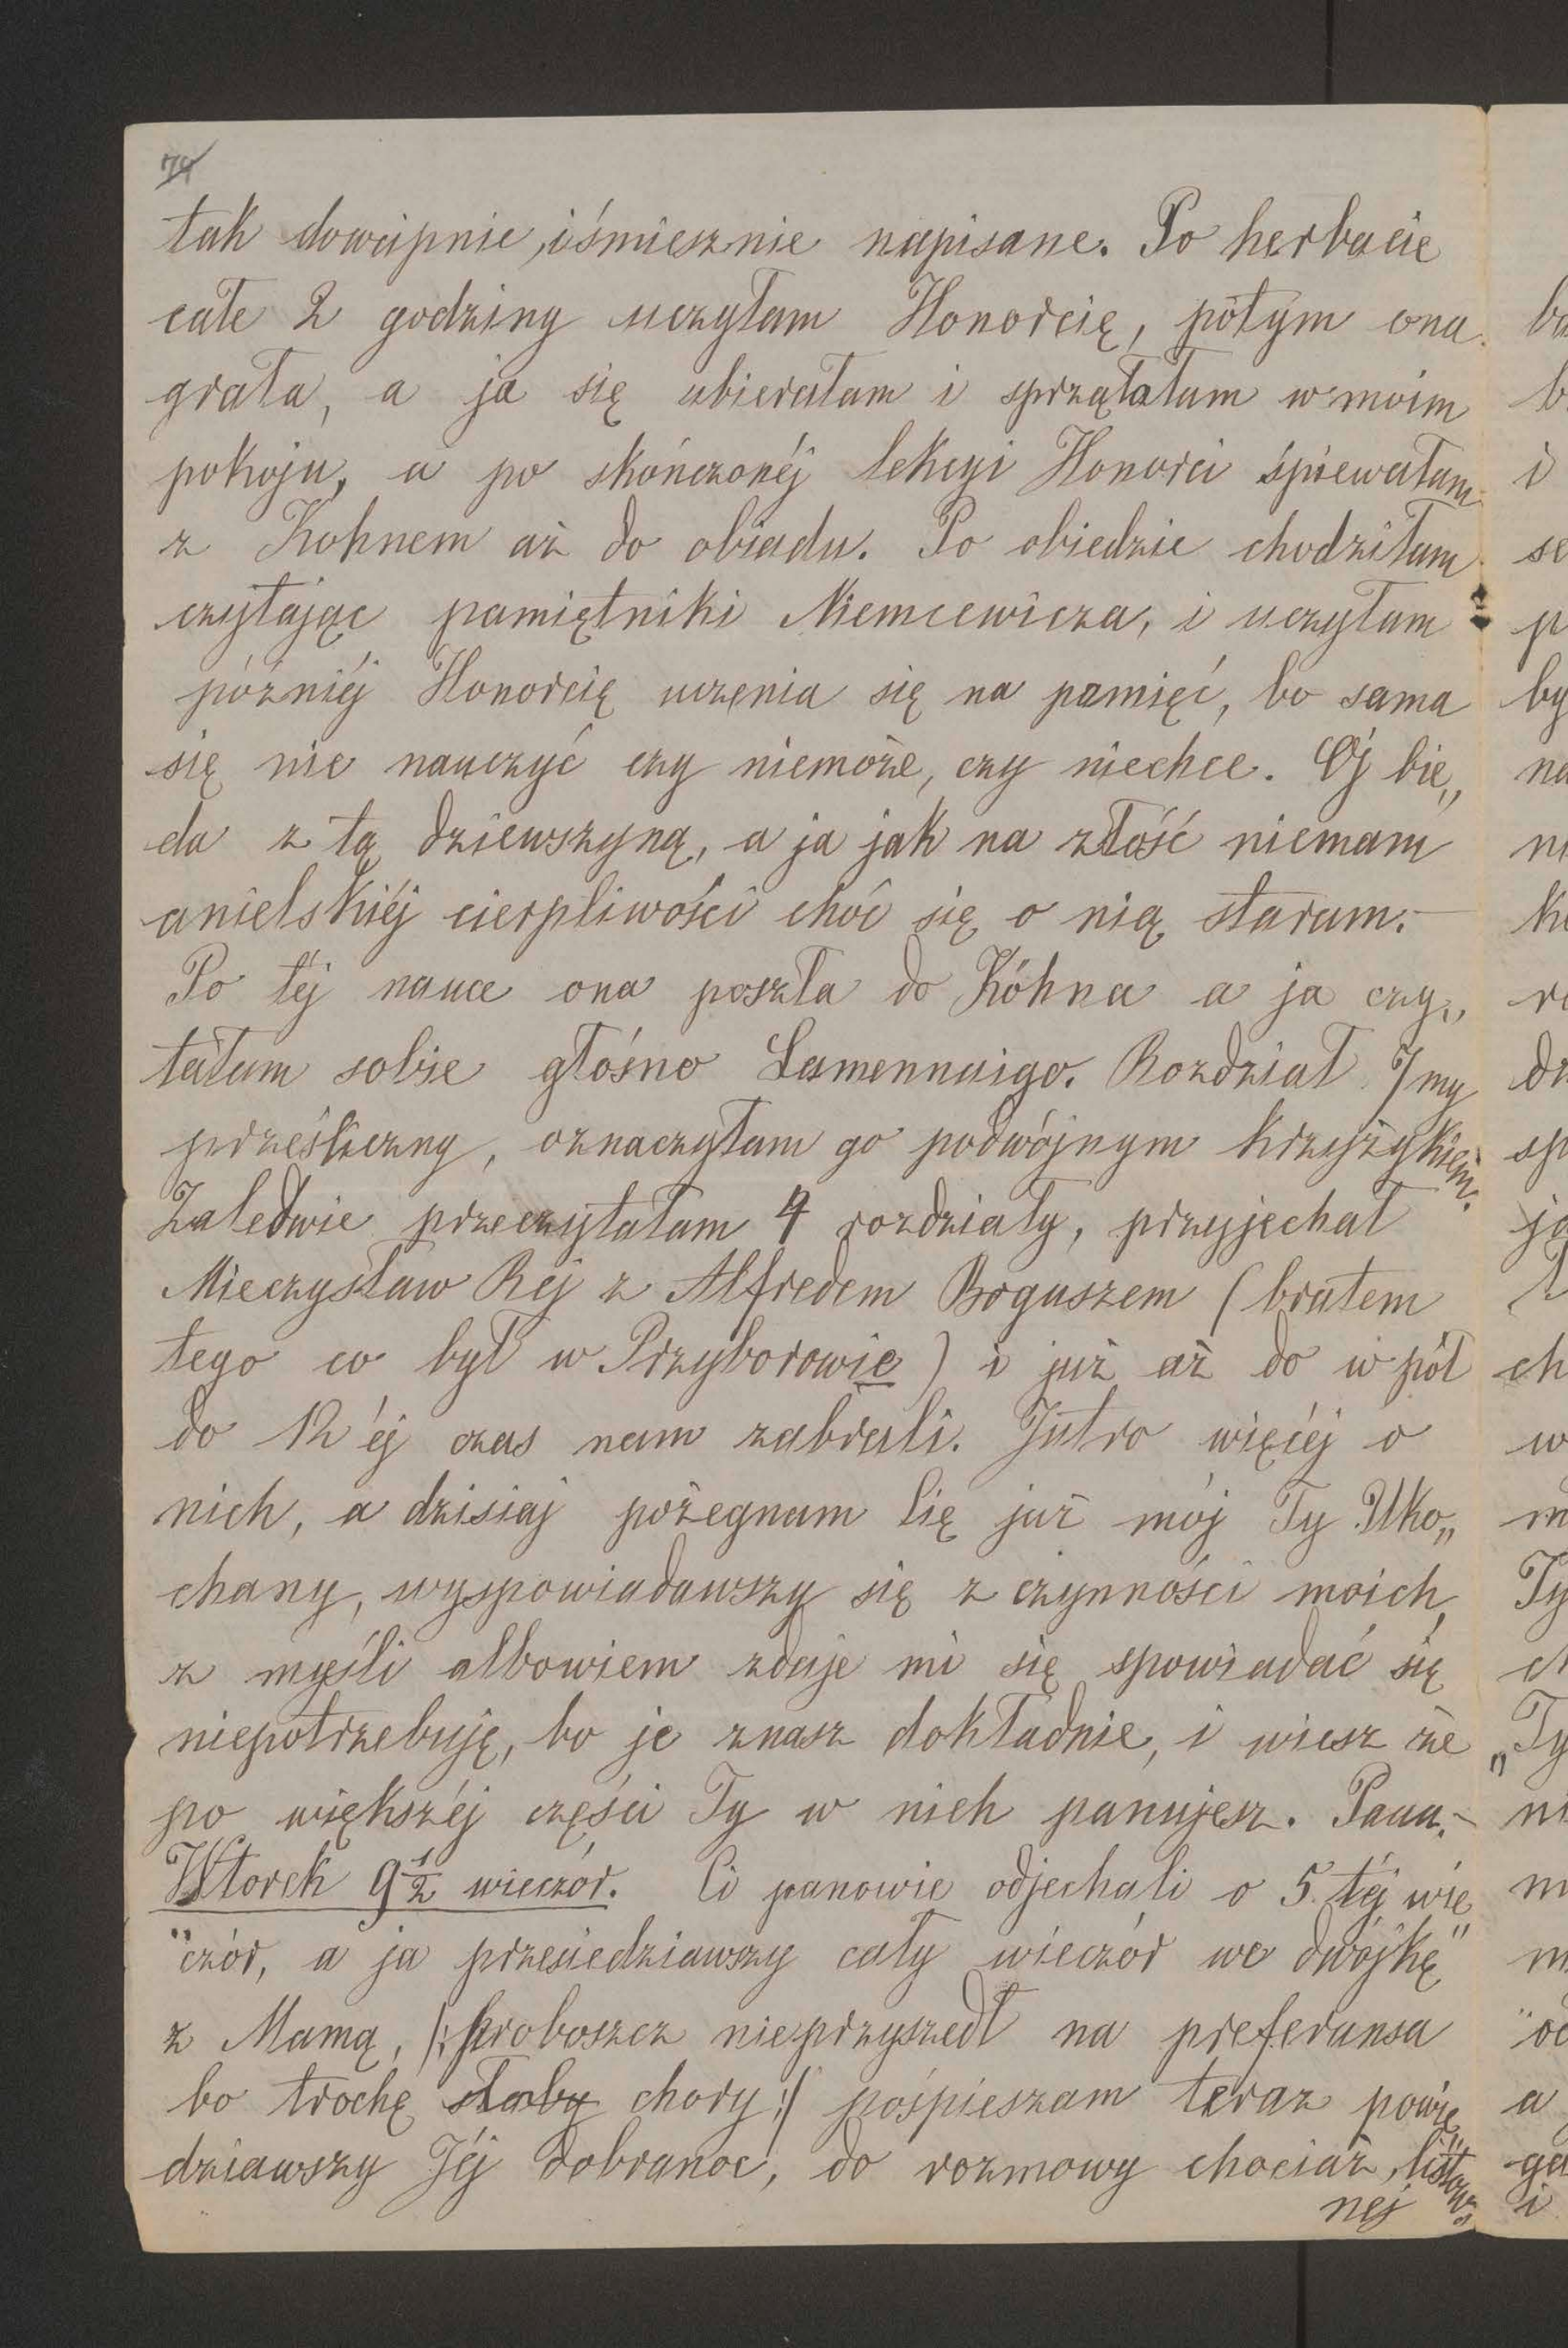 74
tak dowcipnie, i śmiesznie napisane. Po herbacie
całe 2 godziny uczyłam Honorcię, pótym ona
grała, a ja się ubierałam i sprzątałam w moim
pokoju, a po skończonéj lekcyi Honorci śpiewałam
z Kohnem aż do obiadu. Po obiedzie chodziłam
czytając pamiętniki Niemcewicza, i uczyłam
późniéj Honorcię uczenia się na pamięć, bo sama
się nie nauczyć czy niemoże, czy niechce. Oj bie„
da z tą dziewszyną, a ja jak na złość niemam
anielskiéj cierpliwości choć się o nią staram. —
Po téj nauce ona poszła do Kóhna a ja czy„
tałam sobie głośno Lamennaigo. Rozdział 7my
prześliczny, oznaczyłam go podwójnym krzyżykiem.
Zaledwie przeczytałam 4 rozdziały, przyjechał
Mieczysław Rej z Alfredem Boguszem (bratem
tego co był w Przyborowie) i już aż do w pół
do 12 éj czas nam zabrali. Jutro więcéj o
nich, a dzisiaj pożegnam Cię już mój Ty Uko„
chany, wyspowiadawszy się z czynności moich,
z myśli albowiem zdaje mi się spowiadać się
niepotrzebuję, bo je znasz dokładnie, i wiesz że
po większéj części Ty w nich panujesz. Paaa. —
Wtorek 9 1/2 wieczór. Ci panowie odjechali o 5 téj wie
"czór, a ja przesiedziawszy cały wieczór we dwójkę"
z Mamą, /: proboszcz nieprzyszedł na preferansa
bo trochę słaby chory :/ pośpieszam teraz powie„
dziawszy Jéj dobranoc, do rozmowy chociaż listow„
nej